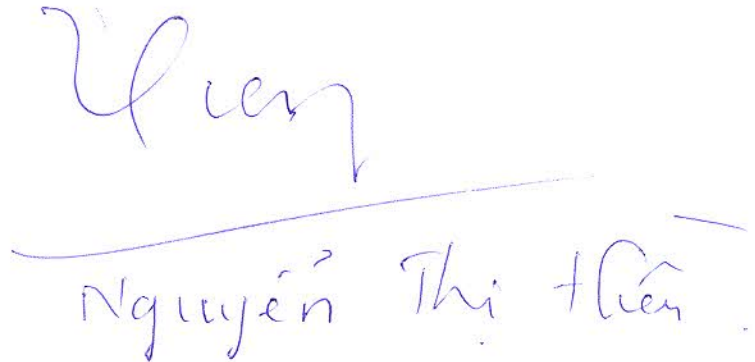 Hien
Nguyễn Thị Hiền